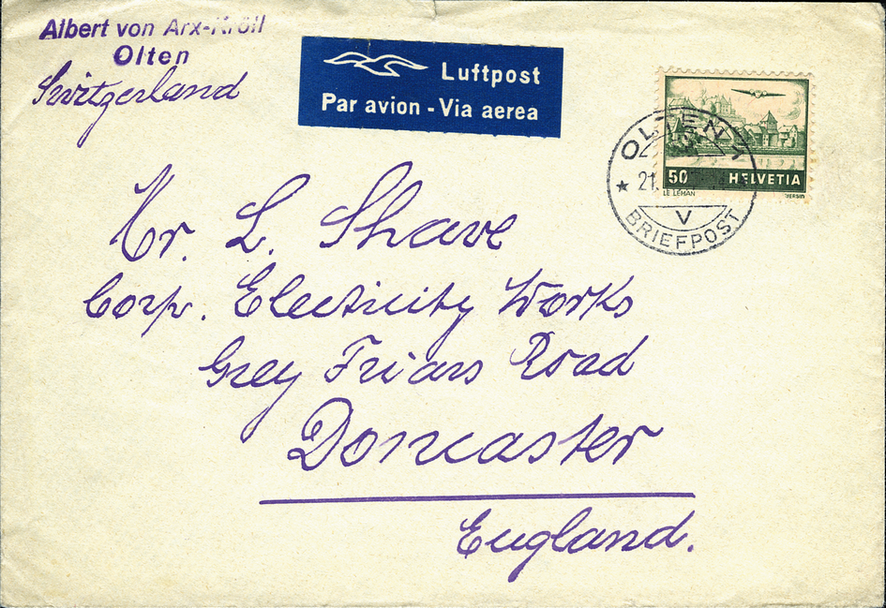 Albert von Arx-Kröll
Olten
Switzerland
Luftpost
Par avion - Via aerea
OLTEN 1
★ 21.
V
BRIEFPOST
50 HELVETIA
LE LÉMAN
Mr. L. Shave
Corp. Electricity Works
Grey Friars Road
Doncaster
England.